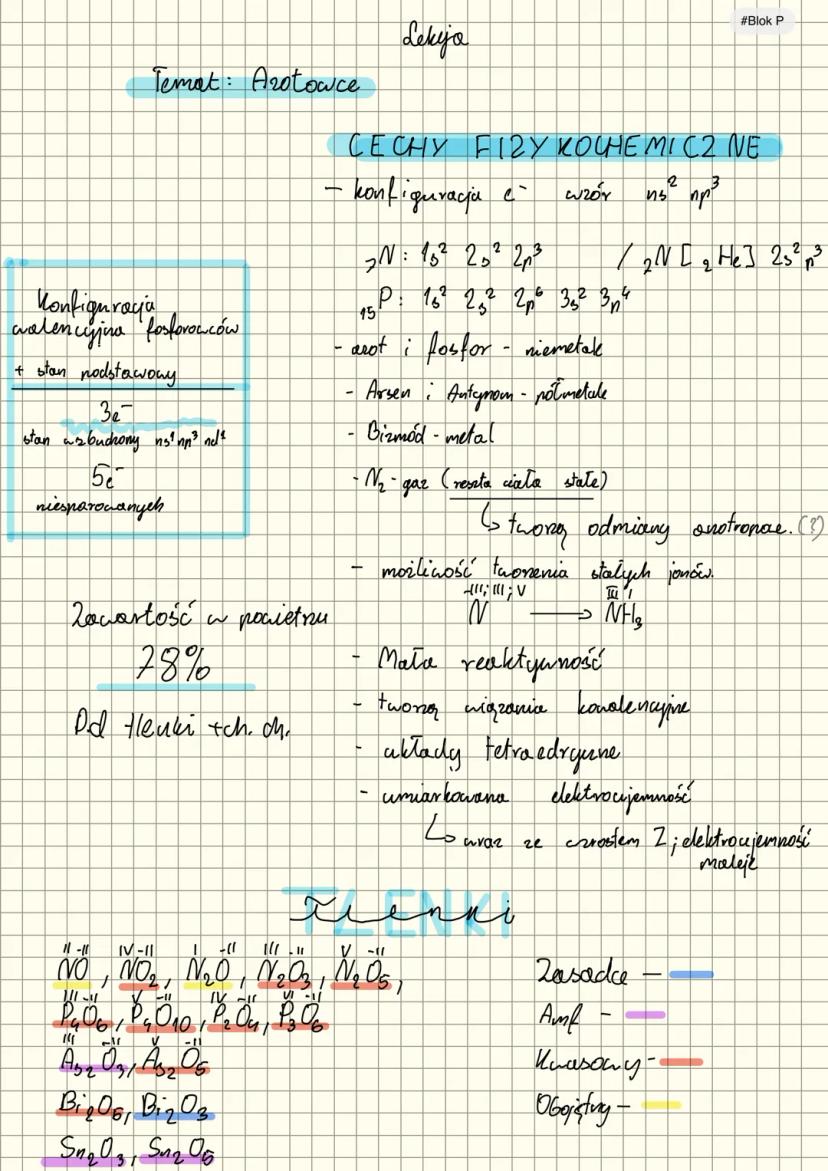 #Blok P
Lekcja
Temat: Azotowce
CECHY FIZYKOCHEMICZNE
- konfiguracja e⁻ wzór ns² np³
₇N: 1s² 2s² 2p³ / ₂N [₂He] 2s² p³
₁₅P: 1s² 2s² 2p⁶ 3s² 3p⁴
- azot i fosfor - niemetale
- Arsen i Antymon - półmetale
- Bizmód - metal
- N₂ - gaz (reszta ciała stałe)
↳ tworzą odmiany anotropae. (?)
- możliwość tworzenia stałych jonów.
-III; III; V III I
N → NH₃
- Mała reaktywność
- tworzą wiązania kowalencyjne
- układy tetraedryczne
- umiarkowana elektroujemność
↳ wraz ze wzrostem Z; elektroujemność
maleje
Konfiguracja
walencyjna fosforowców
+ stan podstawowy
3e⁻
stan wzbudzony ns¹ np³ nd¹
5e⁻
niesparowanych
Zawartość w powietrzu
78%
Od tlenki + ch. ch.
TLENKI
Tlenki
II -II IV -II I -II III -II V -II
NO, NO₂, N₂O, N₂O₃, N₂O₅,
III -II V -II IV -II VI -II
P₄O₆, P₄O₁₀, P₂O₄, P₃O₆
III -II V -II
As₂O₃, As₂O₅
Bi₂O₅, Bi₂O₃
Sn₂O₃, Sn₂O₅
Zasadce -
Amf -
Kwasowy -
Obojętny -